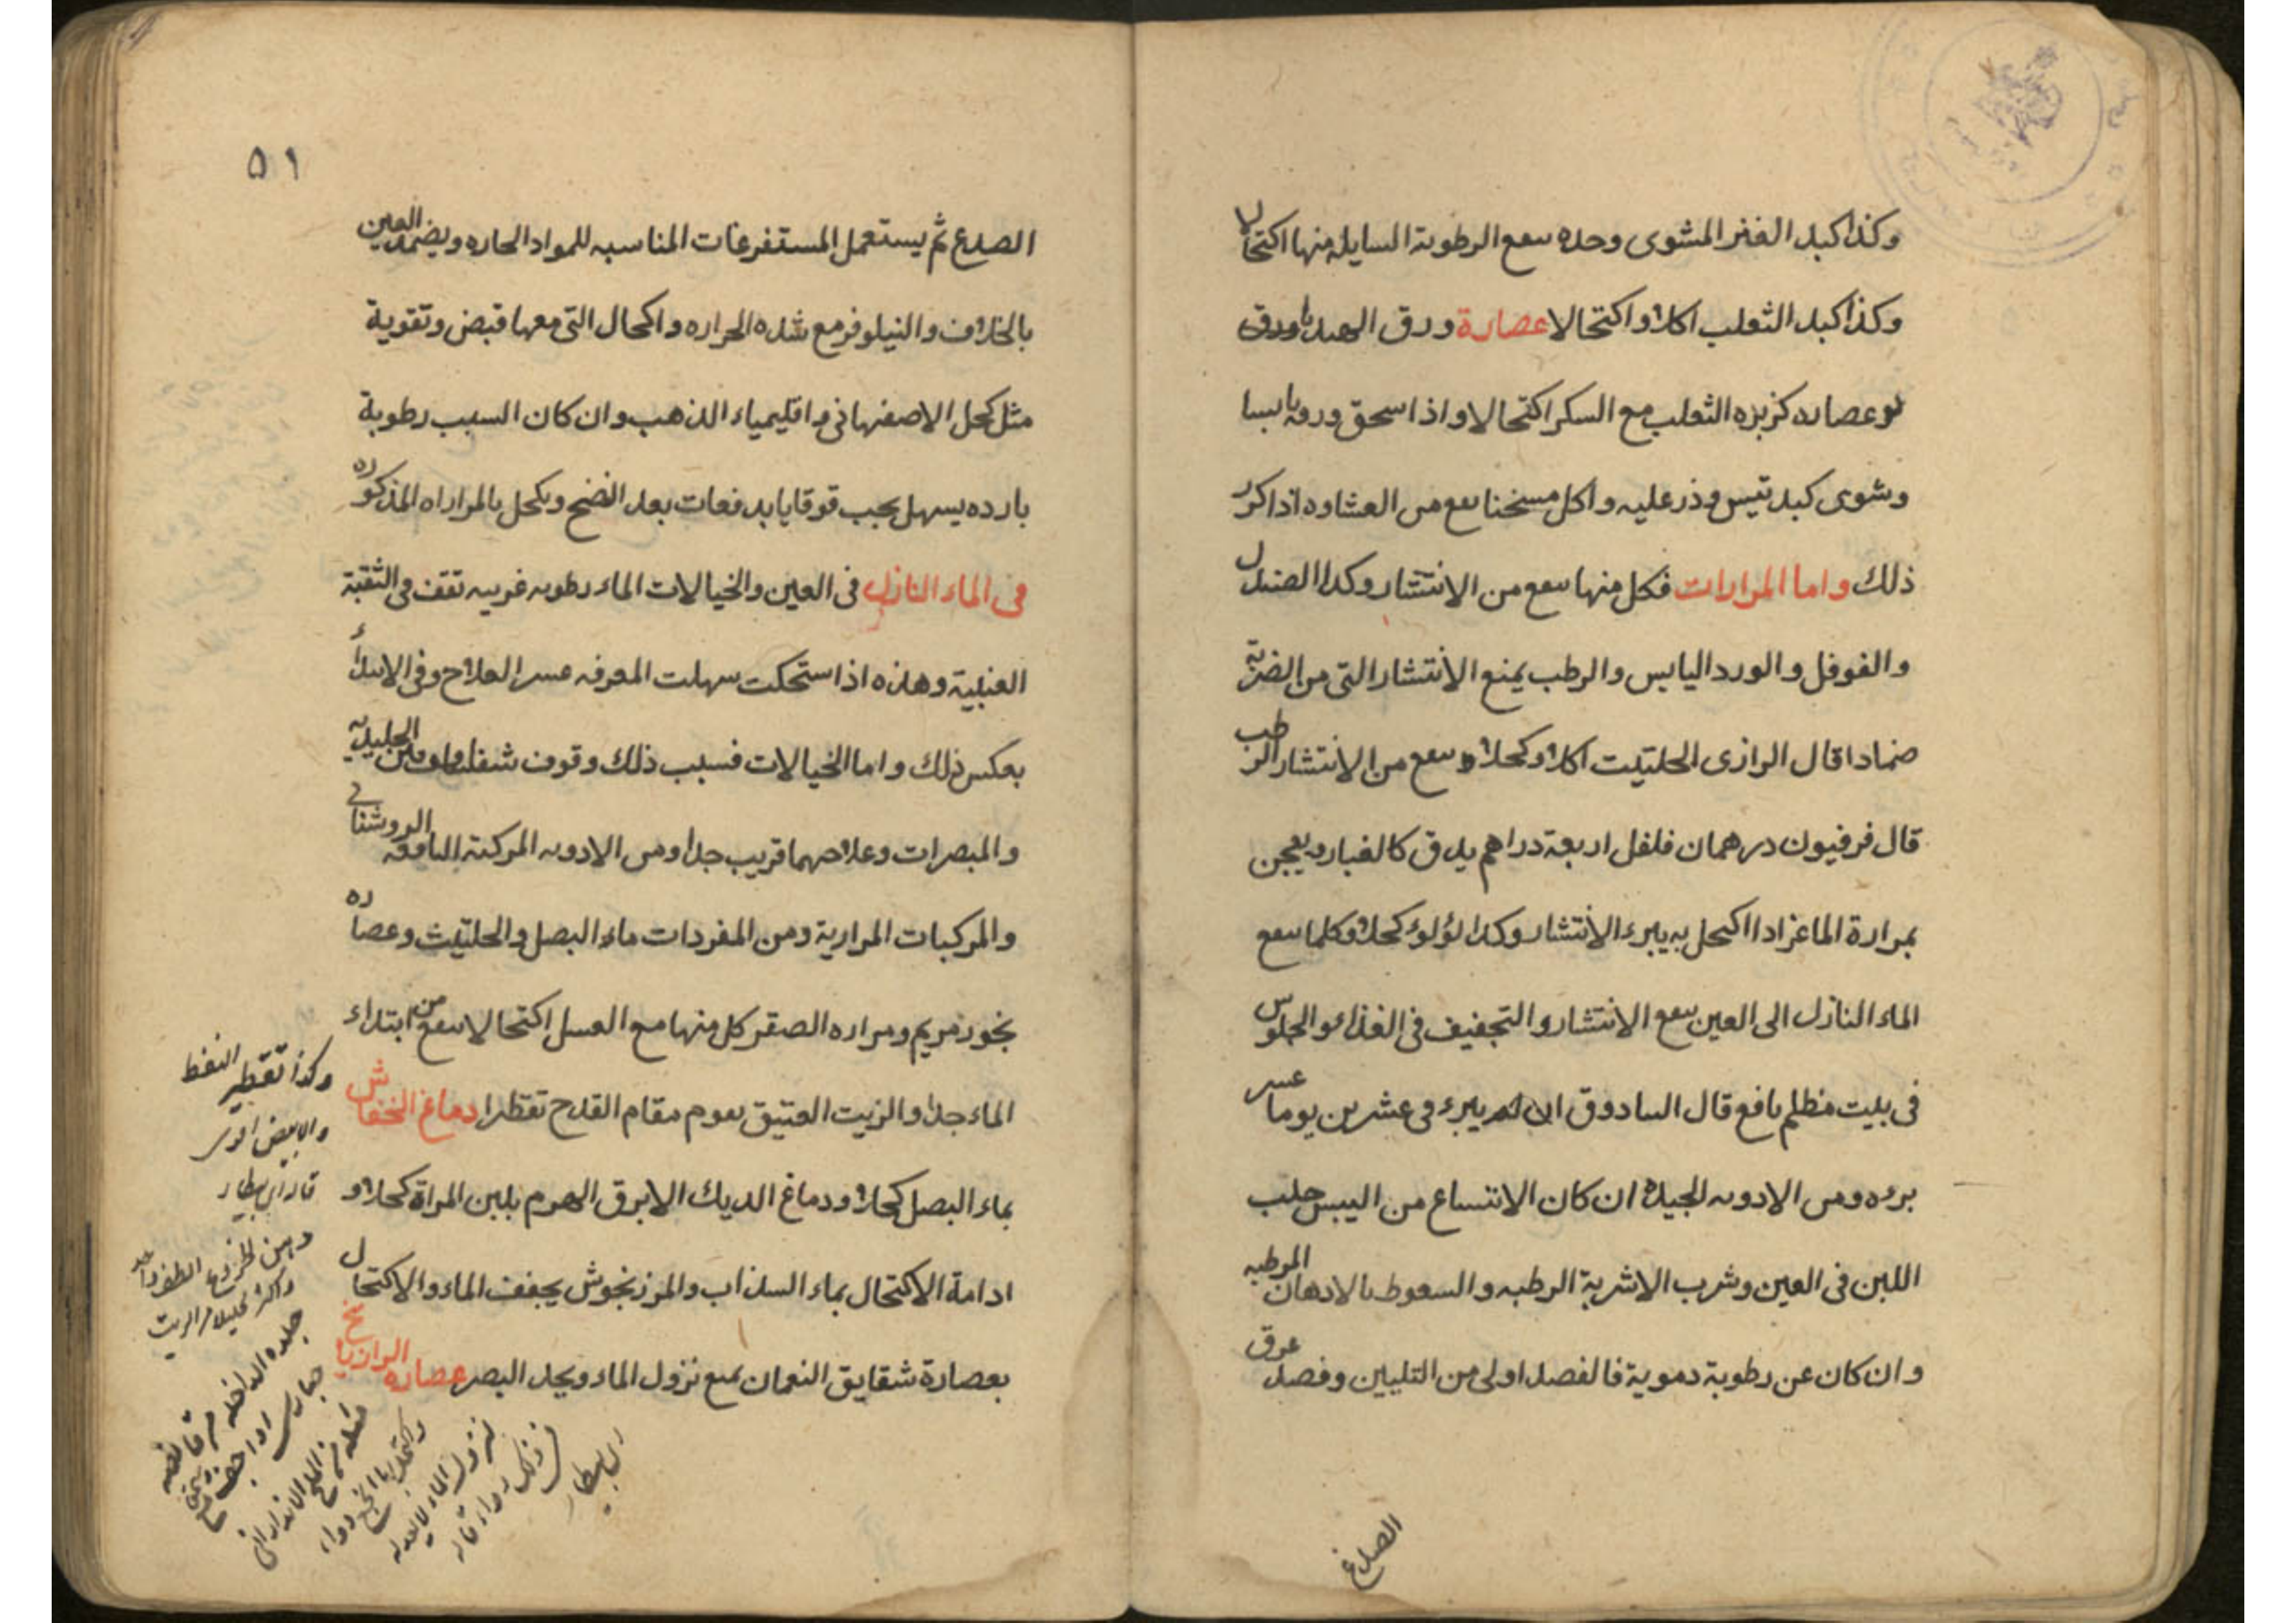 وكذا كبد العنز المشوى وحده ينفع الرطوبة السايله منها اكتحالا
وكذا كبد الثعلب اكلا واكتحالا عصارة ورق
او عصاره كزبره الثعلب مع السكر اكتحالا واذا سحق ورقه يابسا
وشوى كبد تيس وذر عليه واكل مسخنا نفع من العشاوه اذا كرر
ذلك واما المرارات فكل منها ينفع من الانتشار وكذا الصندل
والفوفل والورد اليابس والرطب يمنع الانتشار التى من الضربة
ضمادا قال الرازى الحلتيت اكلا وكحلا ينفع من الانتشار الرطب
قال فرفيون درهمان فلفل اربعة دراهم يدق كالغبار ويعجن
بمرارة الماعز اذا اكتحل به يبرء الانتشار وكذا لؤلوء كحلا وكلما ينفع
الماء النازل الى العين ينفع الانتشار والتجفيف فى الغذاء والجلوس
فى بيت مظلم نافع قال السادوق ان لم يبرء فى عشرين يوما عسر
بروه ومن الادويه الجيدة ان كان الاتساع من اليبس حلب
اللبن فى العين وشرب الاشربة الرطبه والسعوط بالادهان المرطبه
وان كان عن رطوبة دموية فالفصد اولى من التليين وفصد عرق
الصدغ
٥١
الصدع ثم يستعمل المستفرغات المناسبه للمواد الحاره ويضمد العين
بالخلاف والنيلوفر مع شده الحراره واكحال التى معها قبض وتقوية
مثل كحل الاصفهانى واقليمياء الذهب وان كان السبب رطوبة
بارده يسهل بحب قوقايا بدفعات بعد النضج ويكحل بالمراراه المذكوره
فى الماء النازل فى العين والخيالات الماء رطوبه غريبه تقف فى الثقبة
العنبية وهذه اذا استحكت سهلت المعرفه عسر العلاج وفى الابتداء
بعكس ذلك واما الخيالات فسبب ذلك وقوف بين الجليديه
والمبصرات وعلاجهما قريب جدا ومن الادويه المركبة النافعه الروشنائى
والمركبات المرارية ومن المفردات ماء البصل والحلتيت وعصاره
بخور مريم ومراره الصقر كل منها مع العسل اكتحالا ينفع من ابتداء
الماء جدا والزيت العتيق يقوم مقام القدح تقطرا دماغ الخفاش
بماء البصل كحلا ودماغ الديك الابرق الهرم بلبن المراة كحلا و
ادامة الاكتحال بماء السذاب والمرزنجوش يجفف الماء والاكتحال
بعصارة شقايق النعمان يمنع نزول الماء ويحد البصر عصاره الرازيانج
وكذا تقطير النفط
والابيض اقوى
قاله ابن بيطار
جلده الداخله
نزول الماء
ابن بيطار